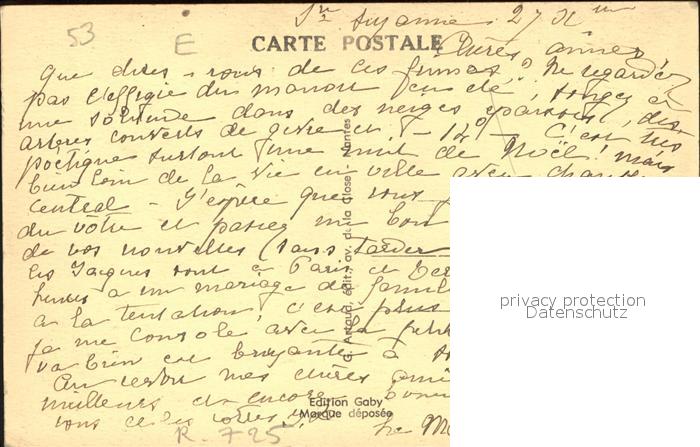 53
E
CARTE POSTALE
27
Chères amies!
que dites-vous de ces frimas? Ne regardez
pas l'effigie du manoir en été, songez à
une solitude dans des neiges épaisses, des
arbres couverts de givre et - 12° - C'est très
poétique surtout une nuit de Noël! mais
bien loin de la vie en ville avec chauffage
central - J'espère que vous
du vôtre et passez un bon
de vos nouvelles (sans tarder
les Jacques sont à Paris et
à un mariage de famil
à la tentation! c'est plus
je me console avec la petite
va bien et bruyante à
Au revoir mes chères ami
meilleurs et encore bonne
R-725
G. Artaud, édit., av. de la Close, Nantes
Edition Gaby
Marque déposée
privacy protection
Datenschutz